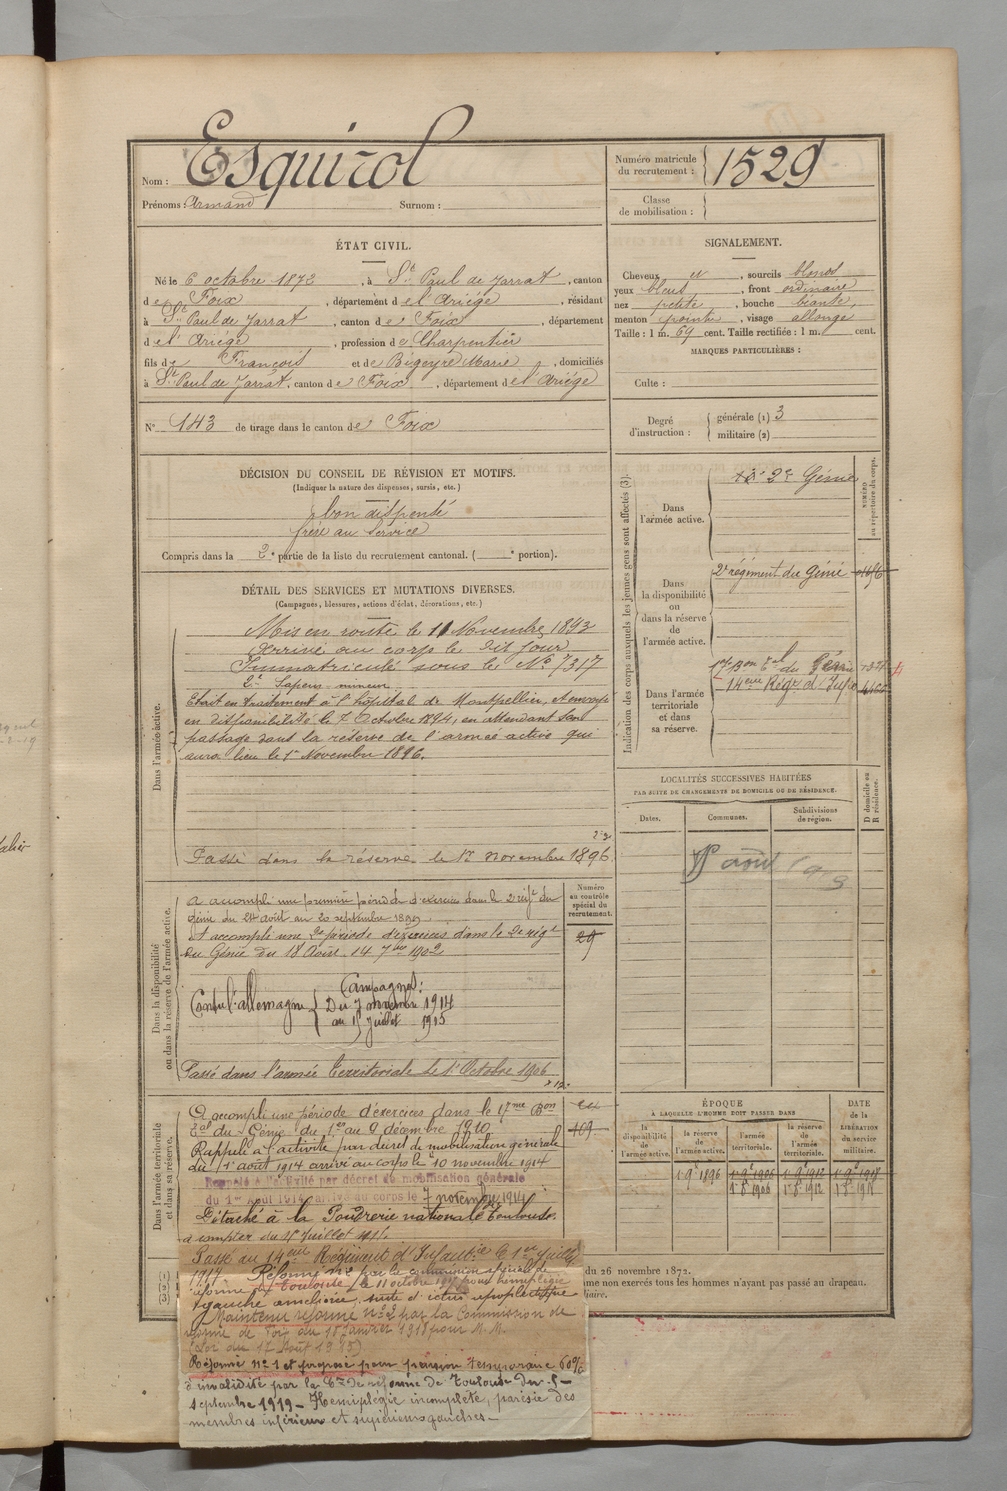 Nom : Esquirol
Prénoms : Armand Surnom :
Numéro matricule du recrutement : 1529
Classe de mobilisation :
ÉTAT CIVIL.
Né le 6 octobre 1872, à St Paul de Jarrat, canton
de Foix, département de l'Ariège, résidant
à St Paul de Jarrat, canton de Foix, département
de l'Ariège, profession de Charpentier
fils de François et de Bigeyre Marie, domiciliés
à St Paul de Jarrat, canton de Foix, département de l'Ariège
N° 143 de tirage dans le canton de Foix
SIGNALEMENT.
Cheveux et, sourcils blonds
yeux bleus, front ordinaire
nez petite, bouche béante,
menton pointu, visage allongé
Taille : 1 m. 69 cent. Taille rectifiée : 1 m. cent.
MARQUES PARTICULIÈRES :
Culte :
Degré d'instruction : générale (1) 3
militaire (2)
DÉCISION DU CONSEIL DE RÉVISION ET MOTIFS.
(Indiquer la nature des dispenses, sursis, etc.)
bon dispensé
frère au service
Compris dans la 2e partie de la liste du recrutement cantonal. ( e portion).
DÉTAIL DES SERVICES ET MUTATIONS DIVERSES.
(Campagnes, blessures, actions d'éclat, décorations, etc.)
Dans l'armée active.
Mis en route le 11 Novembre 1893
Arrivé au corps le dit jour
Immatriculé sous le No 7317
2e Sapeur-mineur
Etait en traitement à l'hôpital de Montpellier, et envoyé
en disponibilité le 7 Octobre 1894, en attendant son
passage dans la réserve de l'armée active qui
aura lieu le 1er Novembre 1896.
Passé dans la réserve le 1er novembre 1896
Dans la disponibilité ou dans la réserve de l'armée active.
A accompli une première période d'exercices dans le 2e régt du
Génie du 24 août au 20 septembre 1899.
A accompli une 2e période d'exercices dans le 2e régt
du Génie du 18 Août 14 7bre 1902
Campagnes :
Contre l'allemagne { Du 7 novembre 1914
au 15 juillet 1915
Passé dans l'armée Territoriale le 1er Octobre 1906
Numéro au contrôle spécial du recrutement.
29
Dans l'armée territoriale et dans sa réserve.
A accompli une période d'exercices dans le 17me Bon
Tal du Génie du 1er au 9 décembre 1910.
Rappelé à l'activité par décret de mobilisation générale
du 1er août 1914 arrivé au corps le 10 novembre 1914
Rappelé à l'activité par décret de mobilisation générale
du 1er Août 1914, arrivé au corps le 7 novembre 1914
Détaché à la Poudrerie nationale Toulouse.
à compter du 15 Juillet 1915.
Passé au 14eme Régiment d'Infantie le 1er Juillet
1917 Réformé No 2 par la commission spéciale de
réforme de Toulouse le 11 octobre 1917 pour hémiplégie
gauche améliorée, suite d'ictus apoplectique
Maintenu réformé No 2 par la Commission de
réforme de Foix du 18 Janvier 1918 pour M.M.
(Loi du 17 Août 1915)
Réformé No 1 et proposé pour pension Temporaire 60%
d'invalidité par la Con de réforme de Toulouse du 5
septembre 1919 - Hémiplégie incomplète, parésie des
membres inférieurs et supérieurs gauches -
Indication des corps auxquels les jeunes gens sont affectés (3).
Dans l'armée active.
2e Génie
NUMÉRO au répertoire du corps.
Dans la disponibilité ou dans la réserve de l'armée active.
2e régiment du Génie
Dans l'armée territoriale et dans sa réserve.
17e Bon Tal du Génie
14eme Régt d'Infie
LOCALITÉS SUCCESSIVES HABITÉES
PAR SUITE DE CHANGEMENTS DE DOMICILE OU DE RÉSIDENCE.
Dates. Communes. Subdivisions de région.
D domicile ou R résidence.
ÉPOQUE
À LAQUELLE L'HOMME DOIT PASSER DANS
la disponibilité de l'armée active. la réserve de l'armée active. l'armée territoriale. la réserve de l'armée territoriale.
DATE de la LIBÉRATION du service militaire.
1 9e 1896 1 9e 1906 1 9e 1912 1 9e 1918
1 8e 1906 1 8e 1912 1 8e 1918
du 26 novembre 1872.
me non exercés tous les hommes n'ayant pas passé au drapeau.
iaire.